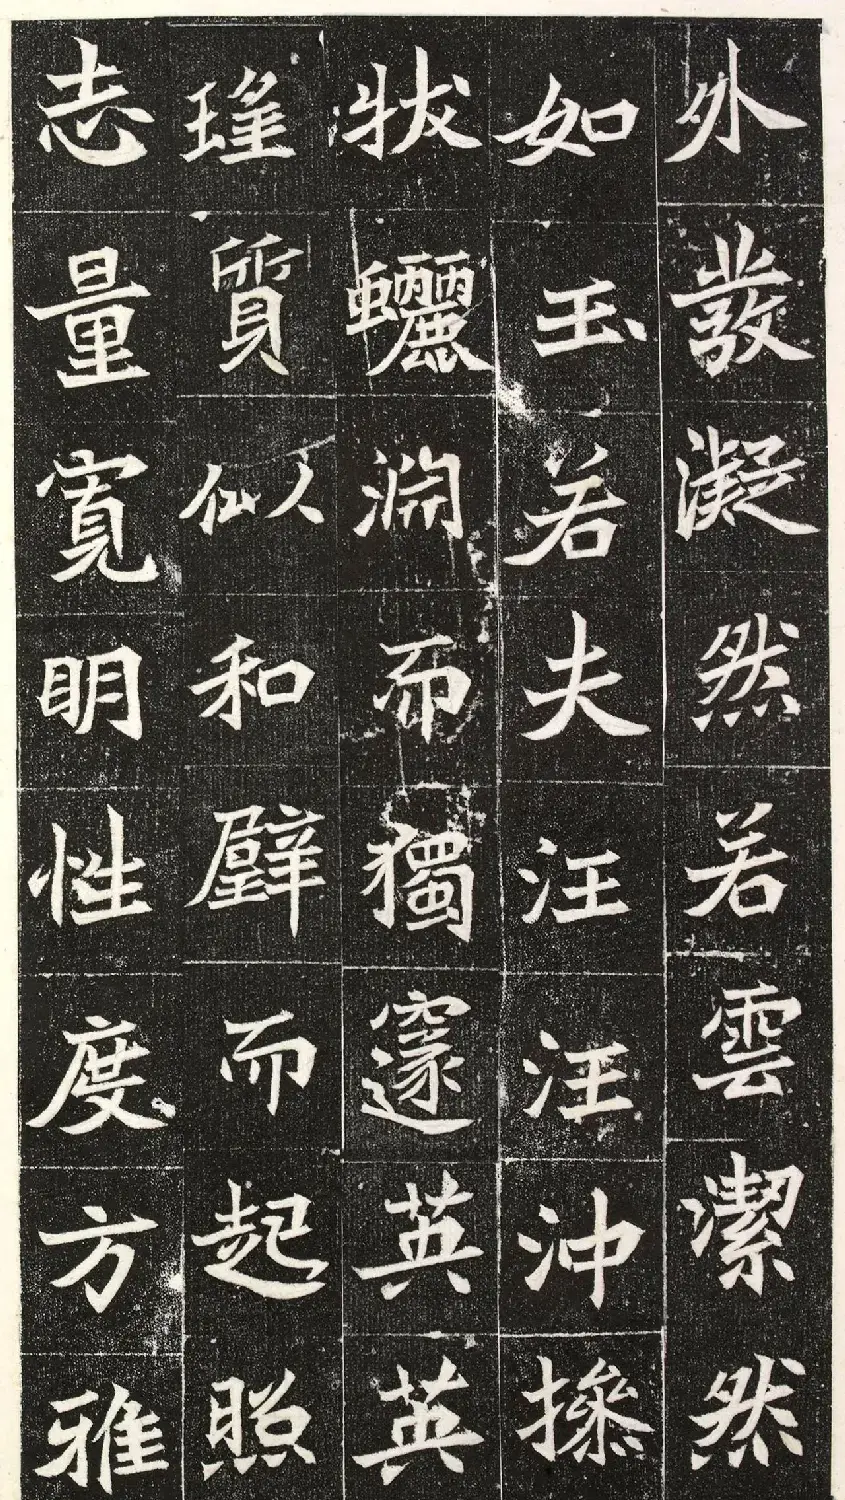 外發凝然若雲潔然
如玉若夫汪汪沖操
狀驪淵而獨邃英英
瑾質似和璧而起照
志量寬明性度方雅